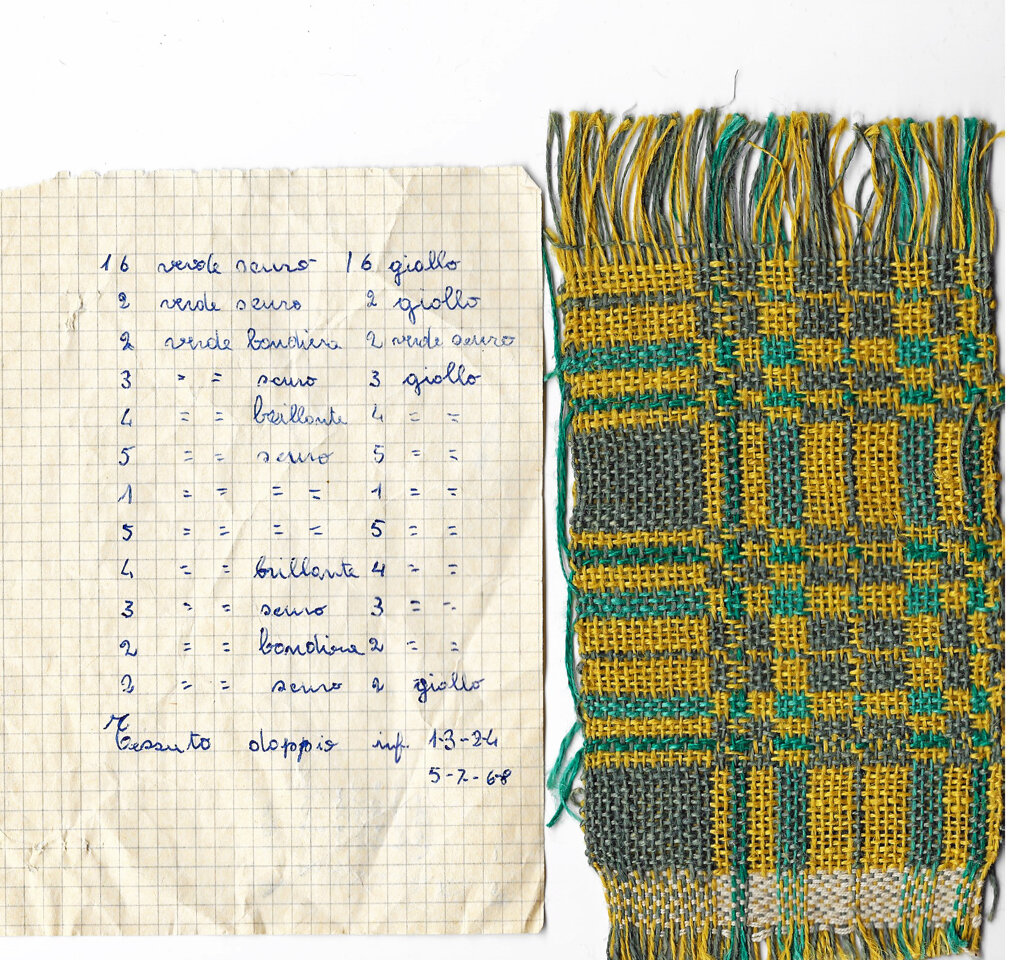 16 verde scuro 16 giallo
2 verde scuro 2 giallo
2 verde bandiera 2 verde scuro
3 = = scuro 3 giallo
4 = = brillante 4 = =
5 = = scuro 5 = =
1 = = = = 1 = =
5 = = = = 5 = =
4 = = brillante 4 = =
3 = = scuro 3 = =
2 = = bandiera 2 = =
2 = = scuro 2 giallo
Tessuto doppio inf. 1-3-2-4
5-7-6-8